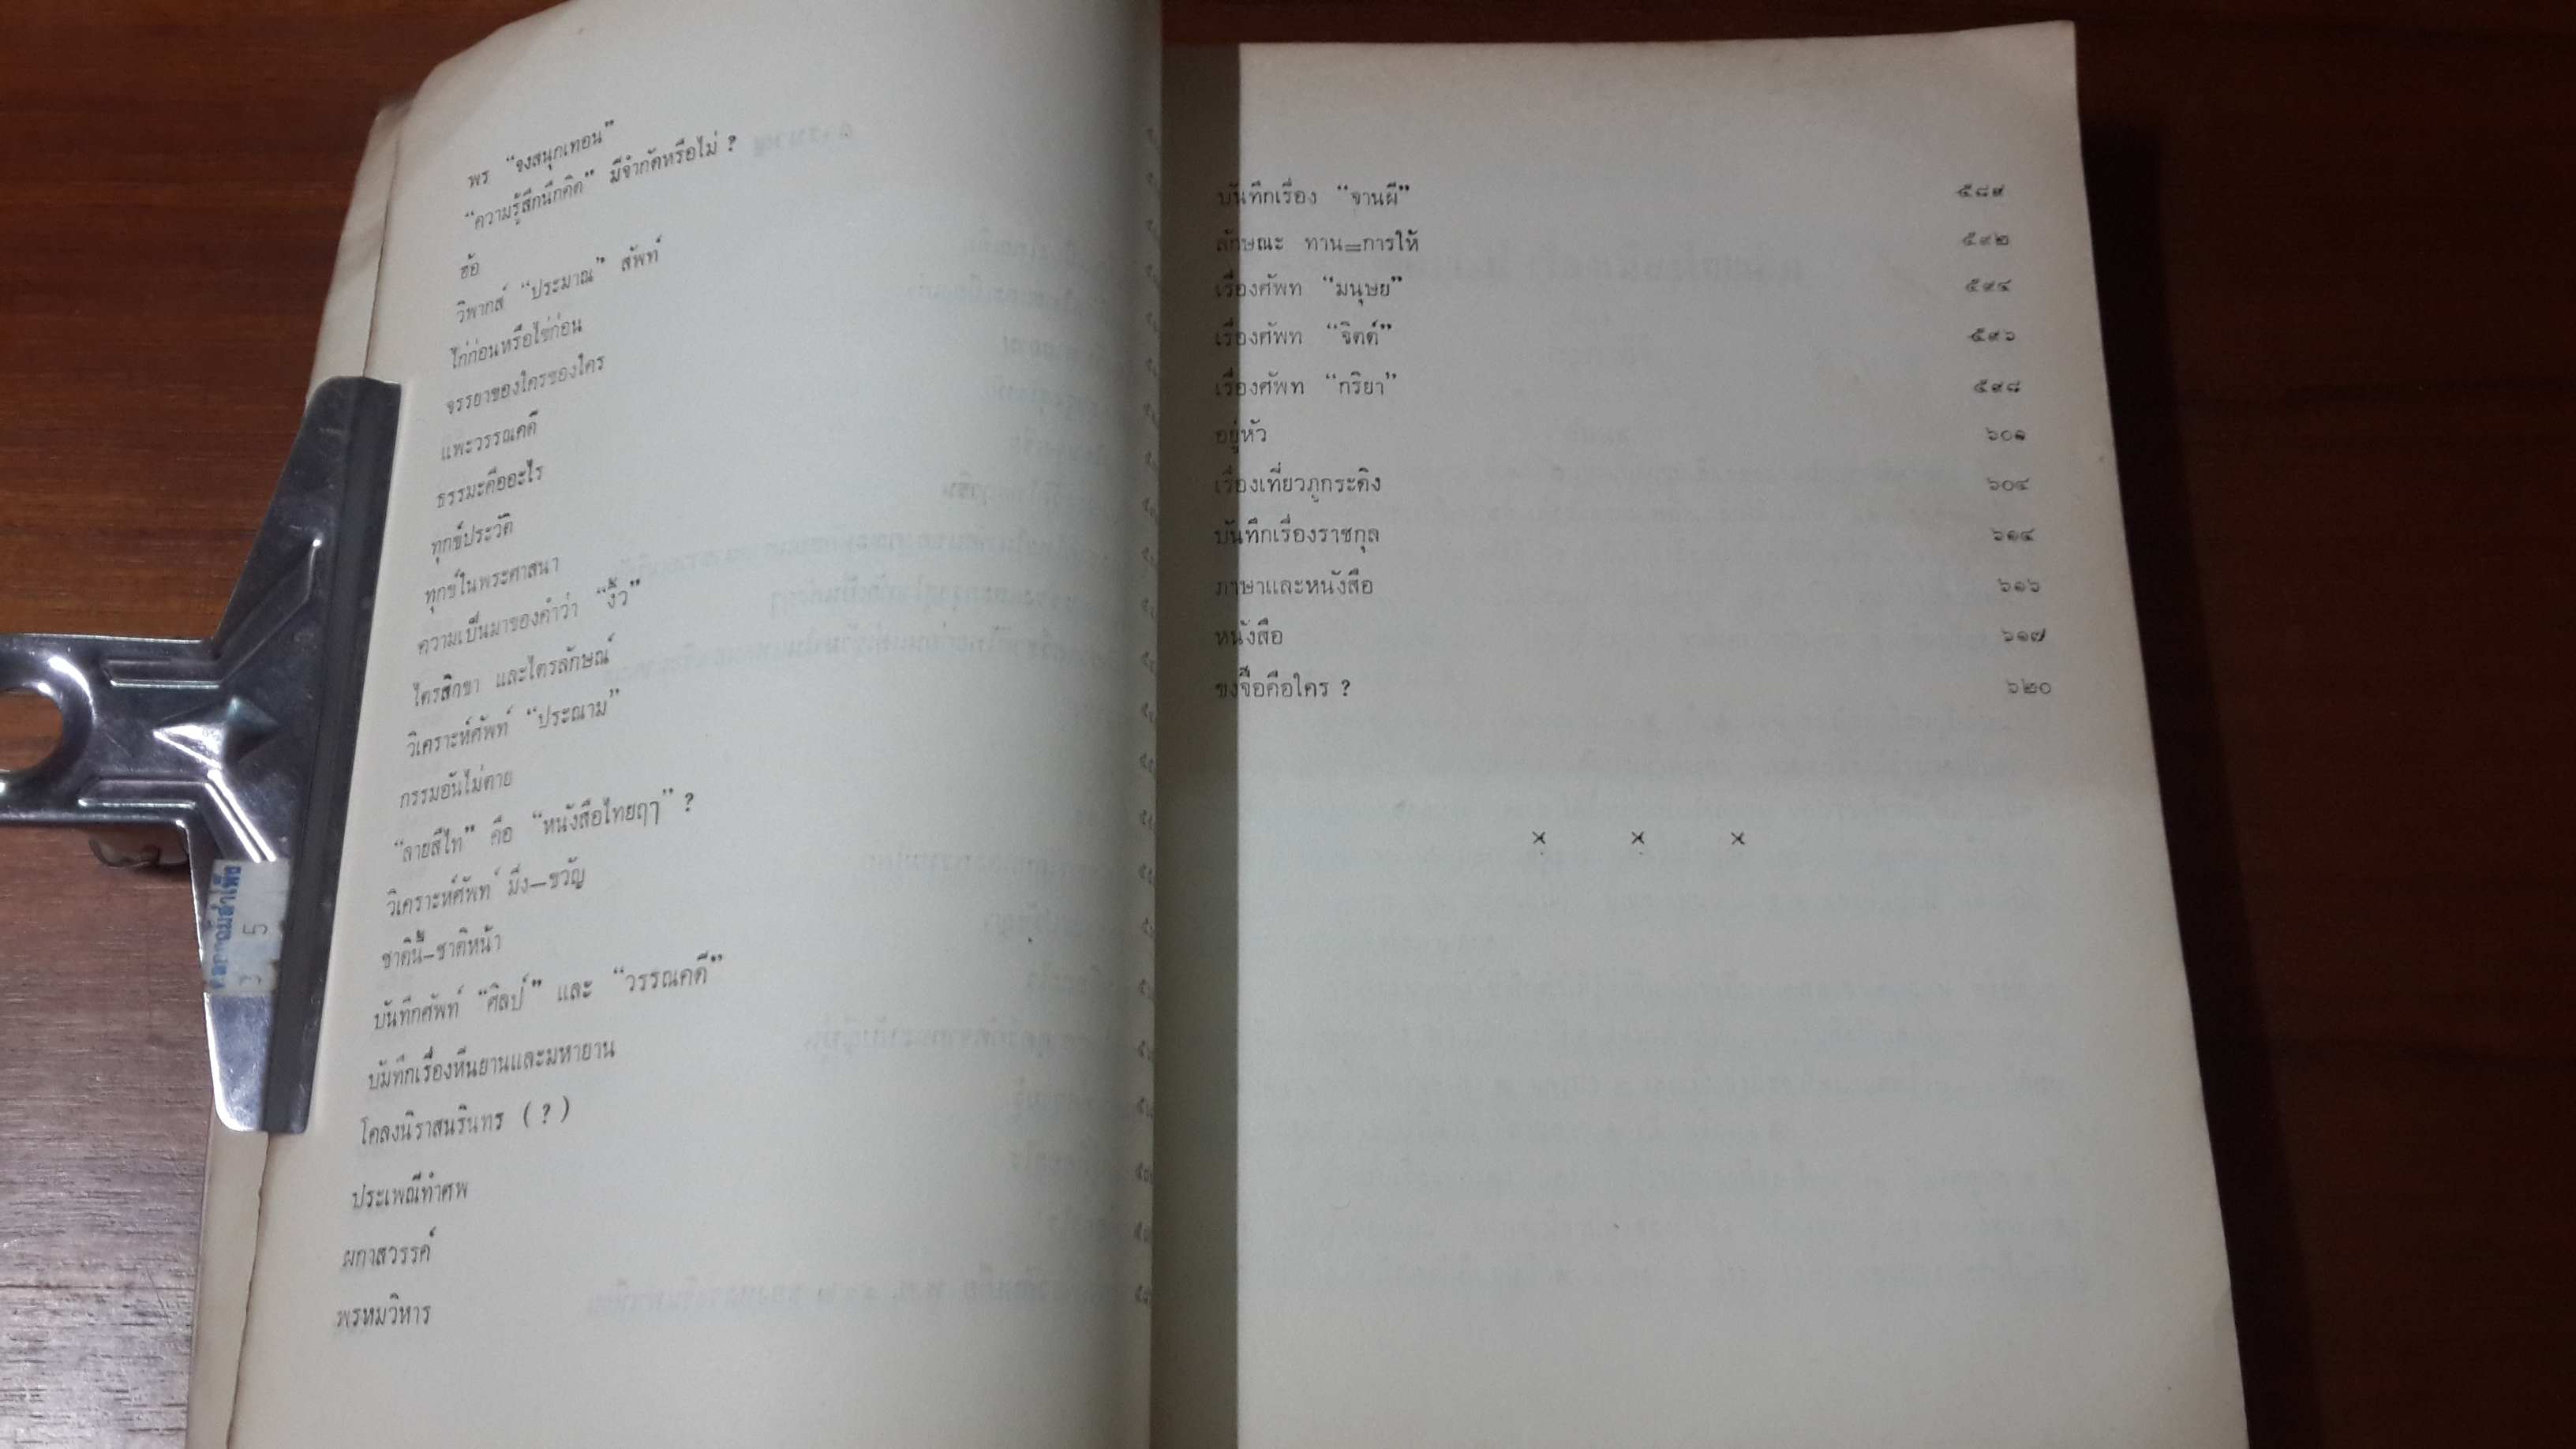 พร “จงสนุกเทอน”
“ความรู้สึกนึกคิด” มีจำกัดหรือไม่ ?
ฮ้อ
วิพากส์ “ประมาณ” สัพท์
ไก่ก่อนหรือไข่ก่อน
จรรยาของใครของใคร
แพะวรรณคดี
ธรรมะคืออะไร
ทุกข์ประวัติ
ทุกข์ในพระศาสนา
ความเป็นมาของคำว่า “งิ้ว”
ไตรสิกขา และไตรลักษณ์
วิเคราะห์ศัพท์ “ประณาม”
กรรมอันไม่ตาย
“ลายสืไท” คือ “หนังสือไทยฤๅ” ?
วิเคราะห์ศัพท์ มิ่ง—ขวัญ
ชาตินี้—ชาติหน้า
บันทึกศัพท์ “ศิลป์” และ “วรรณคดี”
บัมทึกเรื่องหีนยานและมหายาน
โคลงนิราสนรินทร (?)
ประเพณีทำศพ
ผกาสวรรค์
พรหมวิหาร
บันทึกเรื่อง “จานผี” ๕๘๙
ลักษณะ ทาน=การให้ ๕๙๒
เรื่องศัพท “มนุษย” ๕๙๔
เรื่องศัพท “จิตต์” ๕๙๖
เรื่องศัพท “กริยา” ๕๙๘
อยู่หัว ๖๐๑
เรื่องเที่ยวภูกระดิง ๖๐๔
บันทึกเรื่องราชกุล ๖๑๔
ภาษาและหนังสือ ๖๑๖
หนังสือ ๖๑๗
ขงจื๊อคือใคร ? ๖๒๐
× × ×
5